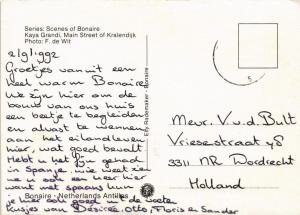 Series: Scenes of Bonaire
Kaya Grandi, Main Street of Kralendijk
Photo: F. de Wit
2/9/1992
Groetjes vanuit een
heel warm Bonaire.
We zijn hier om de
bouw van ons huis
een beetje te begeleiden
en alvast te wennen
aan het eilandleven
hier, wat goed bevalt
Hebt u het fijn gehad
in Spanje. wie weet zien
we u ook een keer hier
want met spaans kun
je hier ook goed in de weete
Kusjes van Désirée, Otto Floris en Sander
Bonaire - Netherlands Antilles
Elly Rademaker - Bonaire
Mevr. V. v.d. Bult
Vriesestraat 48
3311 NR Dordrecht
Holland